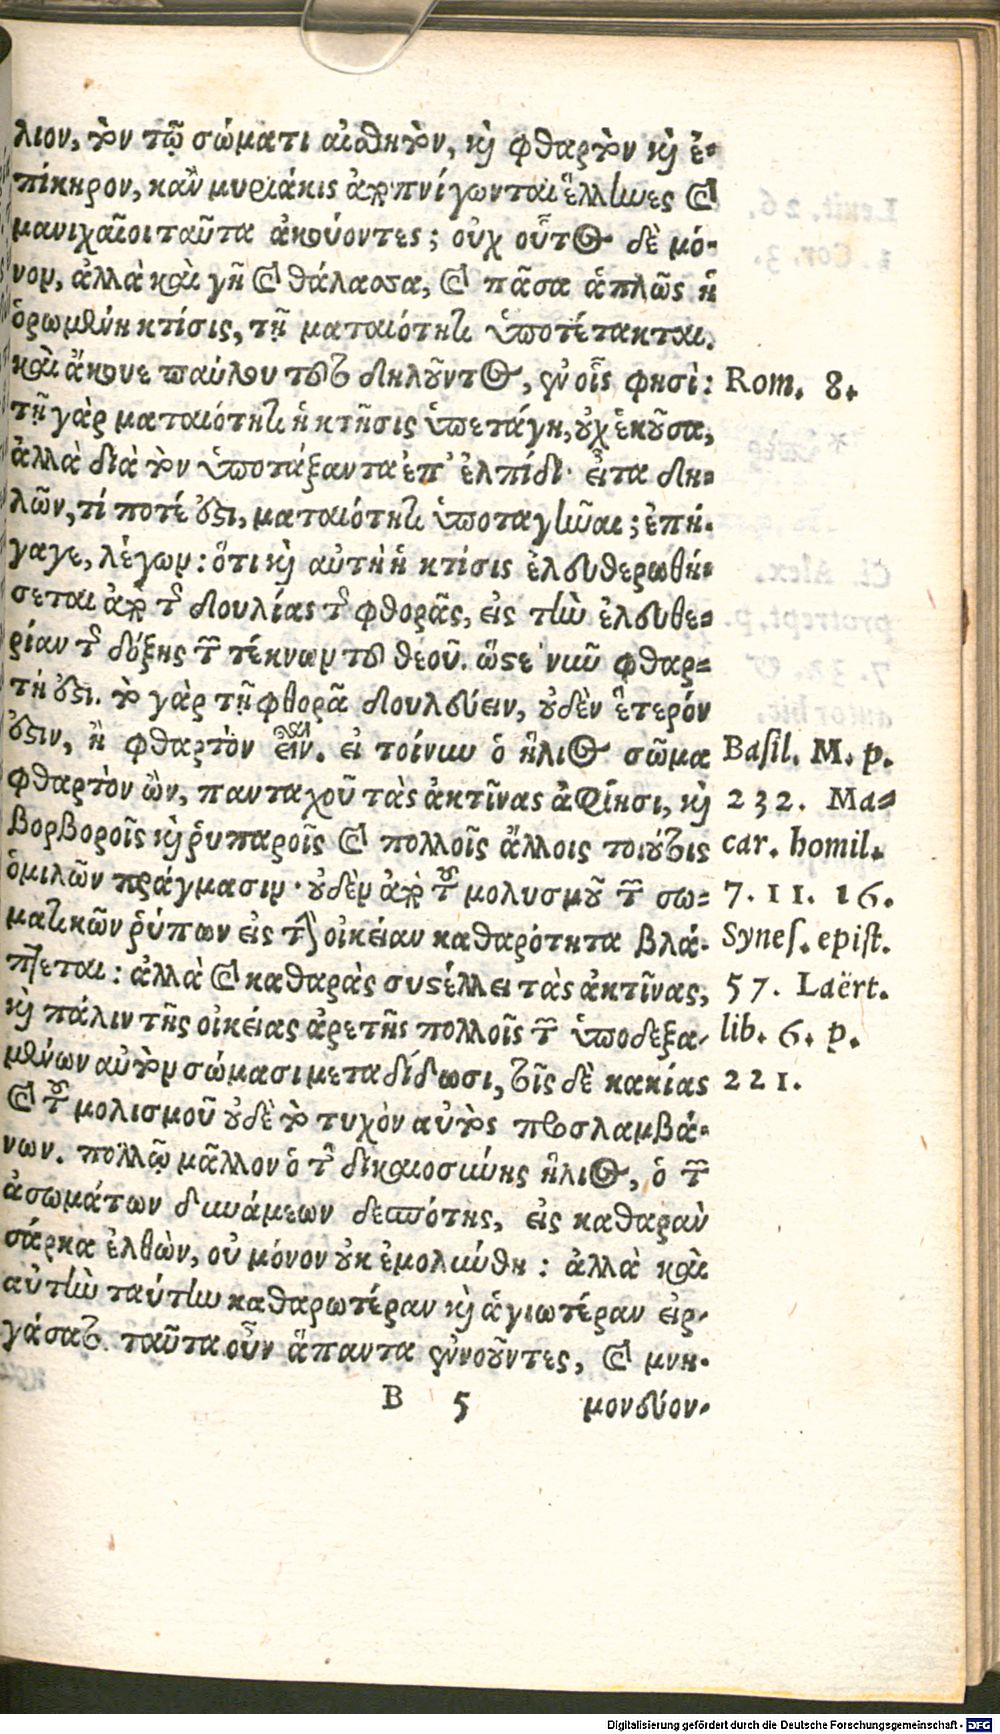 λιον, τὸν τῷ σώματι αἰσθητὸν, καὶ φθαρτὸν καὶ ἐ-
πίκηρον, κἂν μυριάκις ἀποπνίγωνται ἕλληνες καὶ
μανιχαῖοι ταῦτα ἀκούοντες; οὐχ οὗτος δὲ μό-
νον, ἀλλὰ καὶ γῆ καὶ θάλασσα, καὶ πᾶσα ἁπλῶς ἡ
ὁρωμένη κτίσις, τῇ ματαιότητι ὑποτέτακται.
καὶ ἄκουε παύλου τοῦτο δηλοῦντος, ἐν οἷς φησὶ: Rom. 8.
τῇ γὰρ ματαιότητι ἡ κτῆσις ὑπετάγη, οὐχ ἑκοῦσα,
ἀλλὰ διὰ τὸν ὑποτάξαντα ἐπ' ἐλπίδι· εἶτα δη-
λῶν, τί ποτέ ἐστι, ματαιότητι ὑποταγῆναι; ἐπή-
γαγε, λέγων: ὅτι καὶ αὐτὴ ἡ κτίσις ἐλευθερωθή-
σεται ἀπὸ τῆς δουλίας τῆς φθορᾶς, εἰς τὴν ἐλευθε-
ρίαν τῆς δόξης τῶν τέκνων τοῦ θεοῦ. ὥστε νῦν φθαρ-
τή ἐστι. τὸ γὰρ τῇ φθορᾷ δουλεύειν, οὐδὲν ἕτερόν
ἐστιν, ἢ φθαρτὸν εἶναι. εἰ τοίνυν ὁ ἥλιος σῶμα Basil. M. p.
φθαρτὸν ὢν, πανταχοῦ τὰς ἀκτῖνας ἀφίησι, καὶ 232. Ma-
βορβοροῖς καὶ ῥυπαροῖς καὶ πολλοῖς ἄλλοις τοιούτοις car. homil.
ὁμιλῶν πράγμασιν· οὐδὲν ἀπὸ τοῦ μολυσμοῦ τῶν σω- 7. 11. 16.
ματικῶν ῥύπων εἰς τὴν οἰκείαν καθαρότητα βλά- Synes. epist.
πτεται: ἀλλὰ καὶ καθαρὰς συστέλλει τὰς ἀκτῖνας, 57. Laërt.
καὶ πάλιν τῆς οἰκείας ἀρετῆς πολλοῖς τῶν ὑποδεξα- lib. 6. p.
μένων αὐτὸν σώμασι μεταδίδωσι, τοῖς δὲ κακίας 221.
καὶ τοῦ μολισμοῦ οὐδὲ τὸ τυχὸν αὐτὸς προσλαμβά-
νων. πολλῷ μᾶλλον ὁ τῆς δικαιοσύνης ἥλιος, ὁ τῶν
ἀσωμάτων δυνάμεων δεσπότης, εἰς καθαρὰν
σάρκα ἐλθὼν, οὐ μόνον οὐκ ἐμολύνθη: ἀλλὰ καὶ
αὐτὴν ταύτην καθαρωτέραν καὶ ἁγιωτέραν εἰρ-
γάσατο. ταῦτα οὖν ἅπαντα ἐννοοῦντες, καὶ μνη-
B 5 μονεύον-
Digitalisierung gefördert durch die Deutsche Forschungsgemeinschaft - DFG